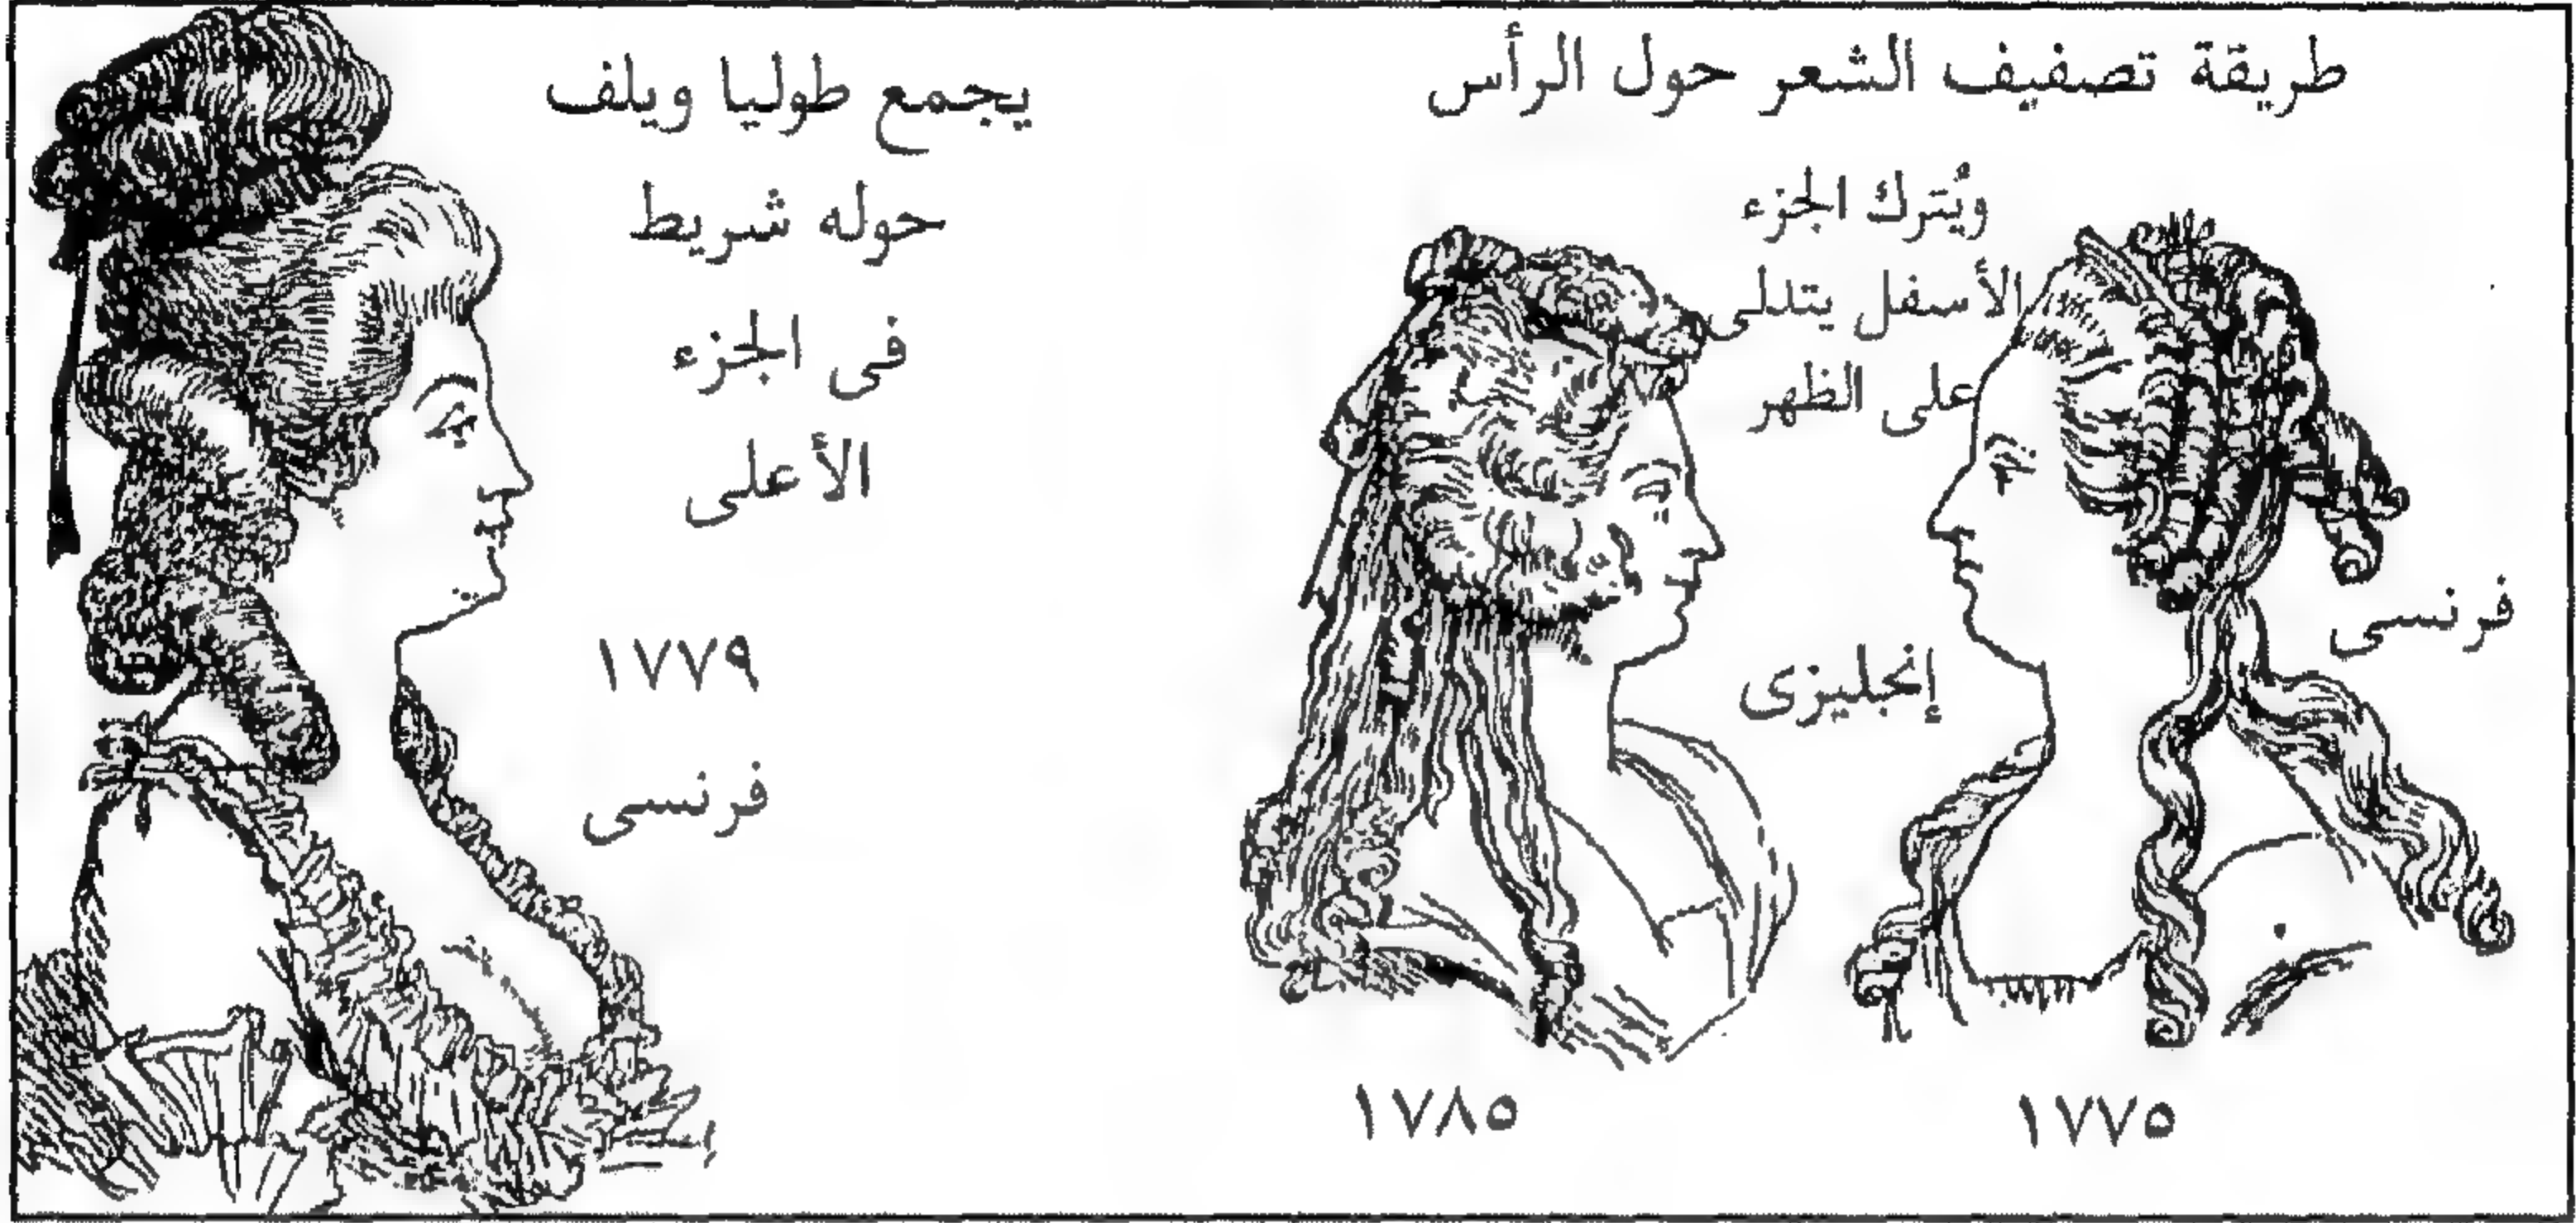 طريقة تصفيف الشعر حول الرأس
ويُترك الجزء
الأسفل يتدلى
على الظهر
فرنسى
إنجليزى
١٧٧٥
١٧٨٥
يجمع طوليا ويلف
حوله شريط
فى الجزء
الأعلى
١٧٧٩
فرنسى